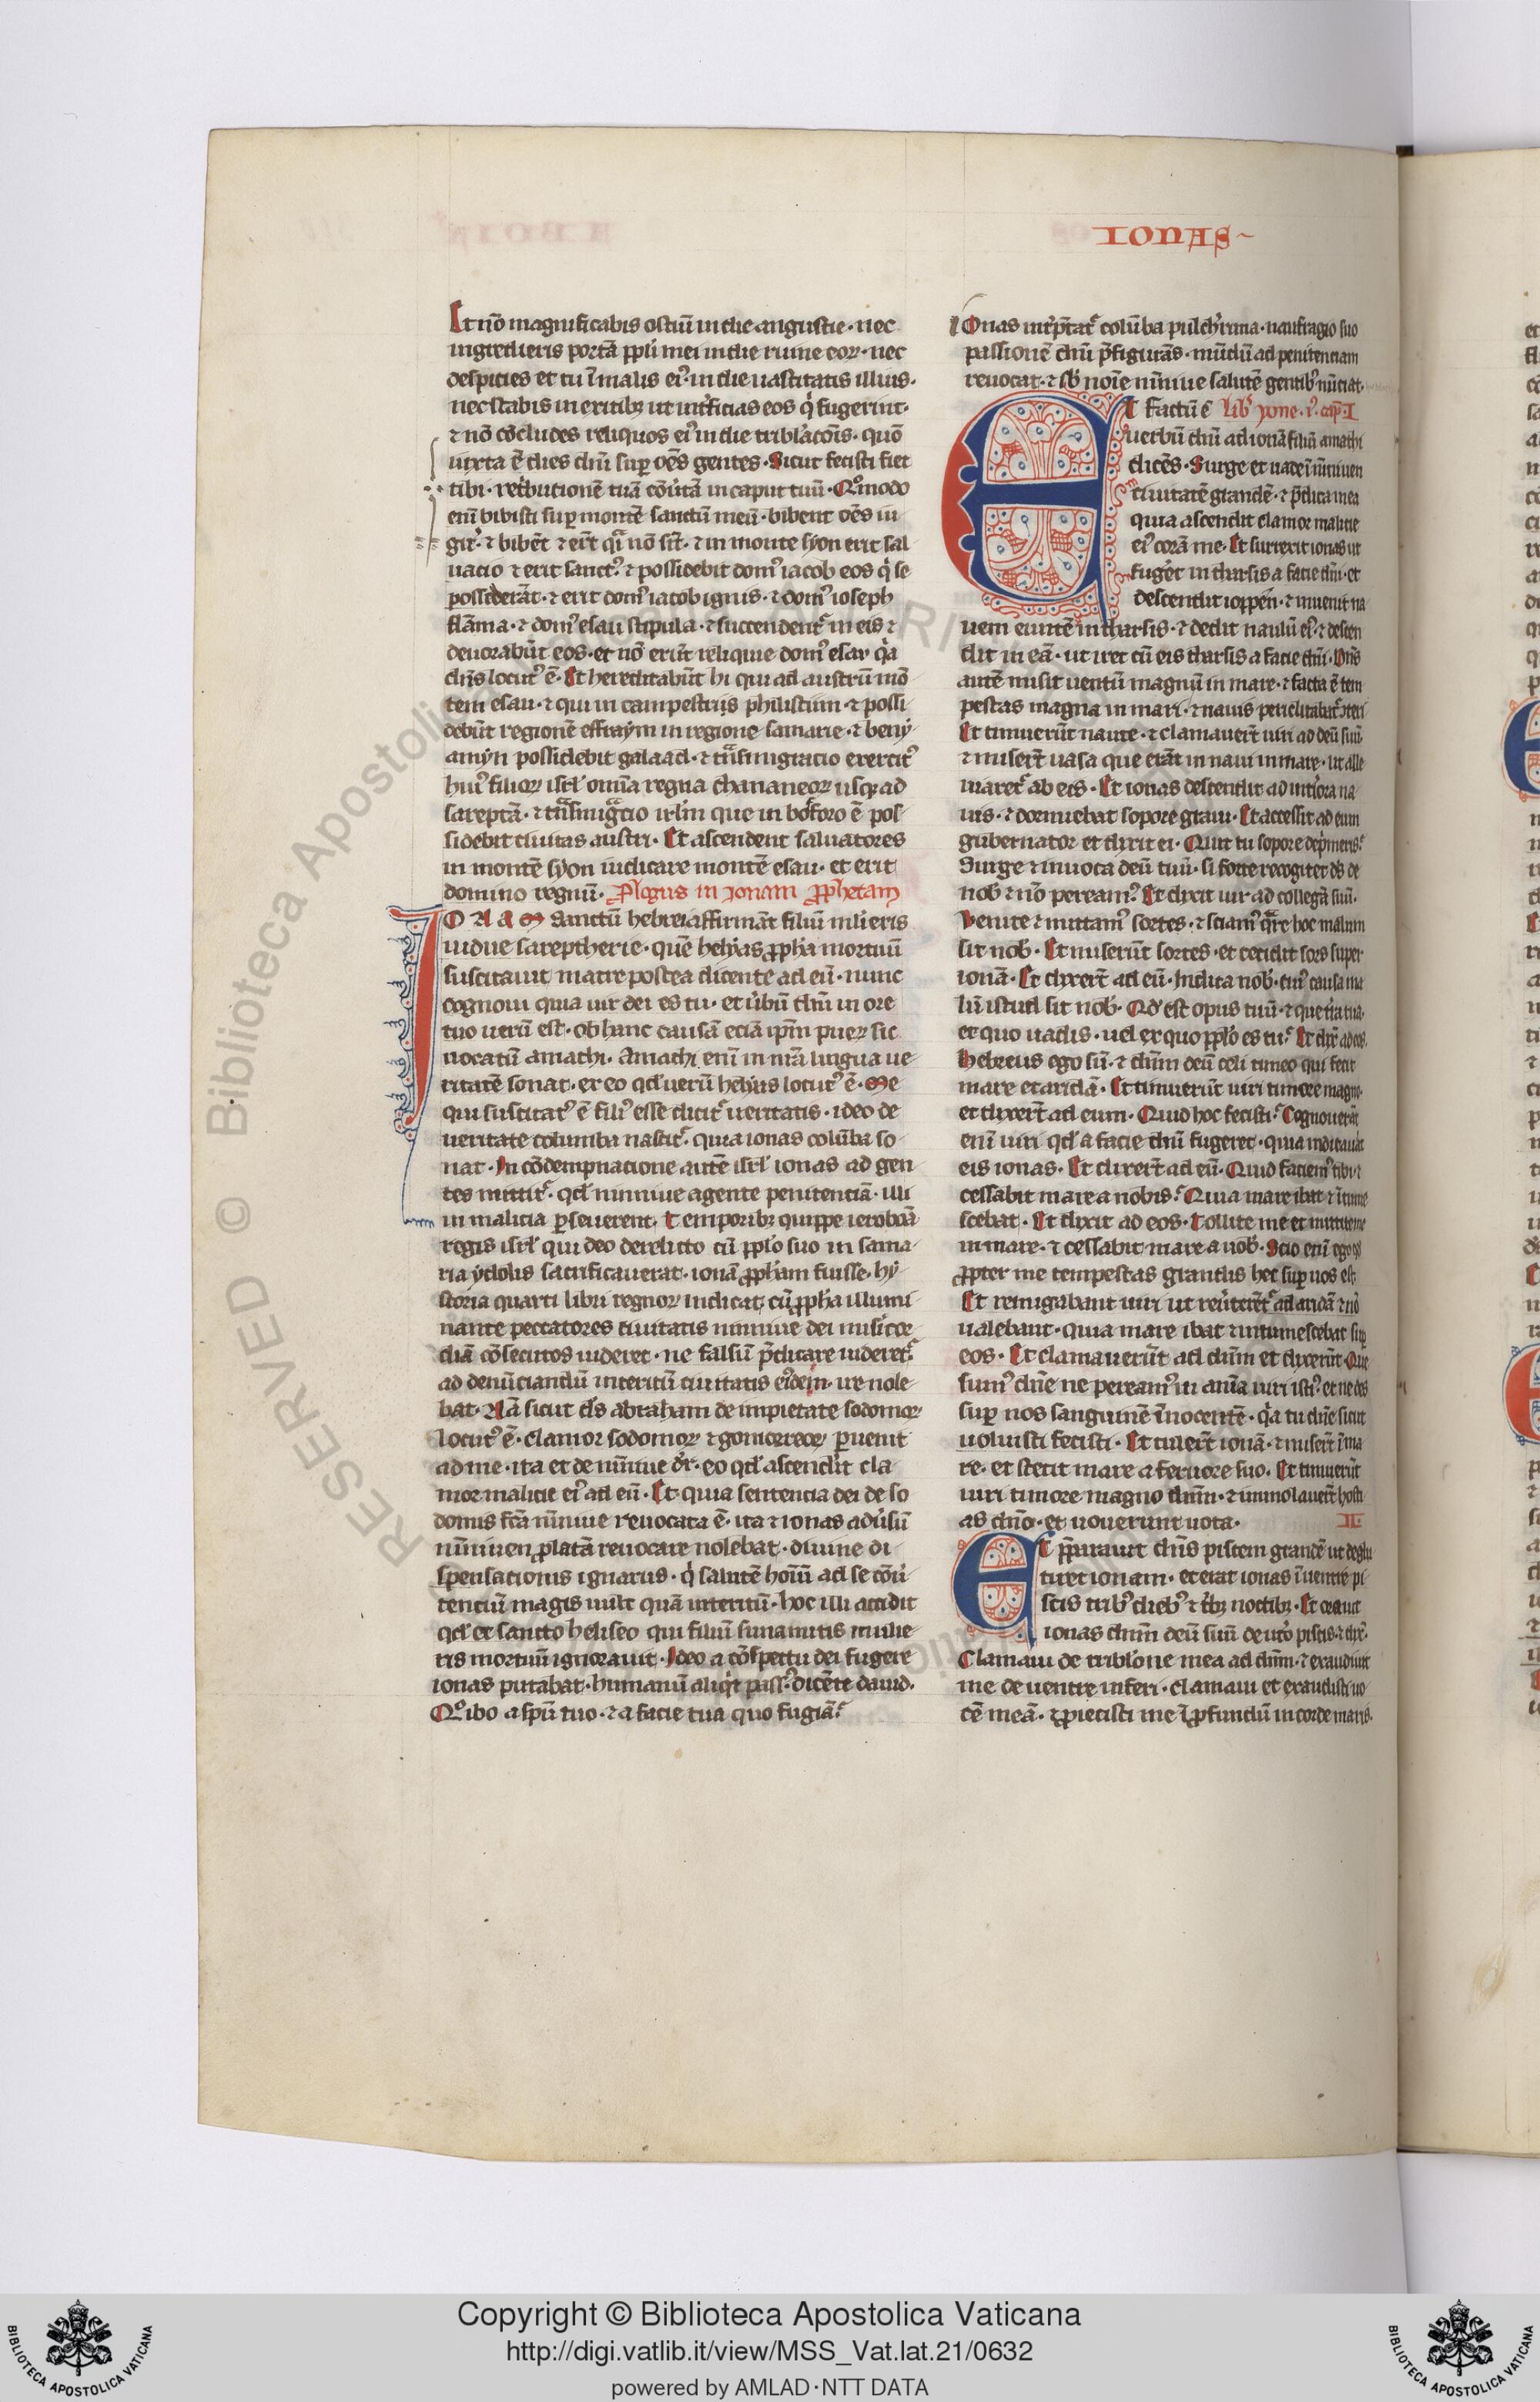 IONAS
Et nō magnificabis os tuū in die angustie · nec
ingredieris portā ppłi mei in die ruine eoꝝ · nec
despicies et tu ī malis eiꝰ in die uastitatis illius ·
nec stabis in exitibꝫ ut int̉ficias eos q̇ fugerint ·
⁊ nō cōcludes reliquos eiꝰ in die tribl̓acōis · quō
iuxta ē dies dn̄i suꝑ oēs gentes · Sicut fecisti fiet
tibi · ret̓butionē tuā cōūtā in caput tuū · Qͦmodo
enī bibisti suꝑ montē sanctū meū · bibent oēs iu
git̉ · ⁊ bibēt ⁊ er̄t qͣi nō sīt · ⁊ in monte syon erit sal
uacio ⁊ erit sanctꝰ · ⁊ possidebit domꝰ iacob eos q̇ se
possederāt · ⁊ erit domꝰ iacob ignis · ⁊ domꝰ ioseph
flāma · ⁊ domꝰ esau stipula · ⁊ succendent̉ in eis ⁊
deuorabūt eos · et nō erūt reliquie domꝰ esau q̇a
dn̄s locutꝰ ē · Et hereditabūt hi qui ad austrū mō
tem esau · ⁊ qui in campestriis philistiim · ⁊ possi
debūt regionē effraym in regione samarie · ⁊ beny
amyn possidebit galaad · ⁊ tͣnsmigracio exercitꝰ
huiꝰ filioꝝ isrł omīa regna chananeoꝝ usqꝫ ad
sareptā · ⁊ tͣnsmigͣcio irłm que in bosforo ē pos
sidebit ciuitas austri · Et ascendent saluatores
in montē syon iudicare montē esau · et erit
domino regnū · Prologus in Jonam prophetam
IONAM Sanctū hebrei affirmāt filiū mlieris
uidue sareptherie · quē helyas ꝓpha mortuū
suscitauit matre postea dicente ad eū · nunc
cognoui quia uir dei es tu · et u̓bū dn̄i in ore
tuo uerū est · ob hanc causā eciā ip̄m pueꝝ sic
uocatū amathi · Amathi enī in nr̄a lingua ue
ritatē sonat · ex eo qd̓ uerū helyas locutꝰ ē · Me
qui suscitatꝰ ē filiꝰ esse dicit̉ ueritatis · ideo de
ueritate columba nascit̉ · quia ionas colūba so
nat · In cōdempnacione autē isrł ionas ad gen
tes mittit̉ · qd̓ niniue agente penitenciā · illi
in malicia ꝑseuerent · Temporibꝫ quippe ieroboā
regis isrł qui deo derelicto cū ppło suo in sama
ria ydolis sacrificauerat · ionā ꝓpham fuisse · hy
storia quarti libri regnoꝝ indicat · cū ꝓpha illumi
nante peccatores ciuitatis niniue dei misicor
diā cōsecutos uideret · ne falsū p̄dicare uideret̉
ad denūciandū interitū ciuitatis eiꝰdem · ire nole
bat · Nā sicut ds̄ abraham de impietate sodomoꝝ
locutꝰ ē · clamor sodomoꝝ ⁊ gomorreoꝝ ꝑuenit
ad me · ita et de niniue dr̄ · eo qd̓ ascendit cla
mor malicie eiꝰ ad eū · Et quia sentencia dei de so
domis fc̄a niniue reuocata ē · ita ⁊ ionas adu̓sū
niniuen ꝓlatā reuocare nolebat · diuine di
spensationis ignarus · q̇ salutē hoīū ad se cōu̓
tenciū magis uult quā interitū · hoc illi accidit
qd̓ et sancto heliseo qui filiū sunamitis mulie
ris mortuū ignorauit · Ideo a cōspectu dei fugere
ionas putabat · humanū aliqͥt passꝰ dicēte dauid ·
Qͦ ibo a spū tuo · ⁊ a facie tua quo fugiā
IOnas int̓p̄tat̉ colūba pulch̓rima · naufragio suo
passionē dn̄i p̄figurās · mūdū ad penitenciam
reuocat · ⁊ sb̓ noīe niniue salutē gentibꝰ nūciat ·
ET factū ē Lib̓ yone · ꝓ · cap · I
uerbū dn̄i ad ionā filiū amathi
dicēs · Surge et uade ī niniuen
ciuitatē grandē · ⁊ p̄dica in ea
quia ascendit clamor malicie
eiꝰ corā me · Et surrexit ionas ut
fuget̓ in tharsis a facie dn̄i · et
descendit ioppen · ⁊ inuenit na
uem euntē in tharsis · ⁊ dedit naulū eiꝰ · ⁊ descen
dit in eā · ut iret cū eis tharsis a facie dn̄i · Dn̄s
autē misit uentū magnū in mare · ⁊ facta ē tem
pestas magna in mari · ⁊ nauis periclitabat̉ ꝯteri
Et timuerūt naute · ⁊ clamauer̄t uiri ad deū suū
⁊ miser̄t uasa que erāt in naui in mare · ut alle
uiaret̉ ab eis · Et ionas descendit ad int̓iora na
uis · ⁊ dormiebat sopore graui · Et accessit ad eum
gubernator et dixit ei · Quit tu sopore dep̓meris
Surge ⁊ inuoca deū tuū · si forte recogitet ds̄ de
nob̓ ⁊ nō pereamꝰ Et dixit uir · ad collegā suū ·
Venite ⁊ mittamꝰ sortes · ⁊ sciamꝰ qͣre hoc malum
sit nob̓ · Et miserūt sortes · et cecidit sors super
ionā · Et dixer̄t ad eū · Indica nob̓ · cuiꝰ causa ma
lū istud sit nob̓ · Qd̓ est opus tuū · ⁊ que t̓ra tua ·
et quo uadis · uel ex quo ppło es tu Et dix̓ ad eos
Hebreus ego sū · ⁊ dn̄m deū celi timeo qui fecit
mare et aridā · Et timuerūt uiri timore magno
et dixer̄t ad eum · Quid hoc fecisti Cognouerāt
enī uiri qd̓ a facie dn̄i fugeret · quia indicauat
eis ionas · Et dixer̄t ad eū · Quid faciemꝰ tibi ⁊
cessabit mare a nobis Quia mare ibat ⁊ ītume
scebat · Et dixit ad eos · Tollite me et mittite me
in mare · ⁊ cessabit mare a uob̓ · Scio enī ego qd̓
ꝓpter me tempestas grandis hec suꝑ uos est
Et remigabant uiri ut reu̓terēt̉ ad aridā ⁊ nō
ualebant · Quia mare ibat ⁊ intumescebat suꝑ
eos · Et clamauerūt ad dn̄m et dixerūt Que
sumꝰ dn̄e ne pereamꝰ in anīa uiri istiꝰ · et ne des
suꝑ nos sanguinē īnocentē · q̇a tu dn̄e sicut
uoluisti fecisti · Et tuler̄t ionā · ⁊ miser̄t ī ma
re · et stetit mare a feruore suo · Et timuerūt
uiri timore magno dn̄m · ⁊ immolauer̄t hosti
as dn̄o · et uouerunt uota · II
ET p̄parauit dn̄s piscem grandē ut deglu
tiret ionam · et erat ionas ī uentre pi
scis tribꝰ diebꝰ ⁊ t̓bꝫ noctibꝫ · Et orauit
ionas dn̄m deū suū de ut̓o piscis · ⁊ dix̓ ·
Clamaui de tribl̓one mea ad dn̄m · ⁊ exaudiuit
me de uentre inferi · clamaui et exaudisti uo
cē meā · ⁊ ꝓiecisti me ī ꝓfundū in corde maris ·
RESERVED © Biblioteca Apostolica Vaticana
Copyright © Biblioteca Apostolica Vaticana
http://digi.vatlib.it/view/MSS_Vat.lat.21/0632
powered by AMLAD·NTT DATA
BIBLIOTECA APOSTOLICA VATICANA
BIBLIOTECA APOSTOLICA VATICANA